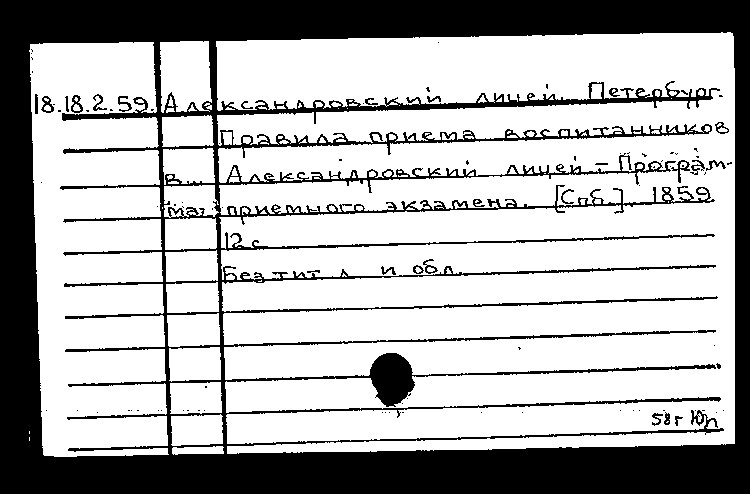 18.18.2.59. Александровский лицей. Петербург.
Правила приема воспитанников
в... Александровский лицей. – Програм-
ма приемного экзамена. [Спб.]. 1859.
12 с.
Без тит. л. и обл.
58г Юп